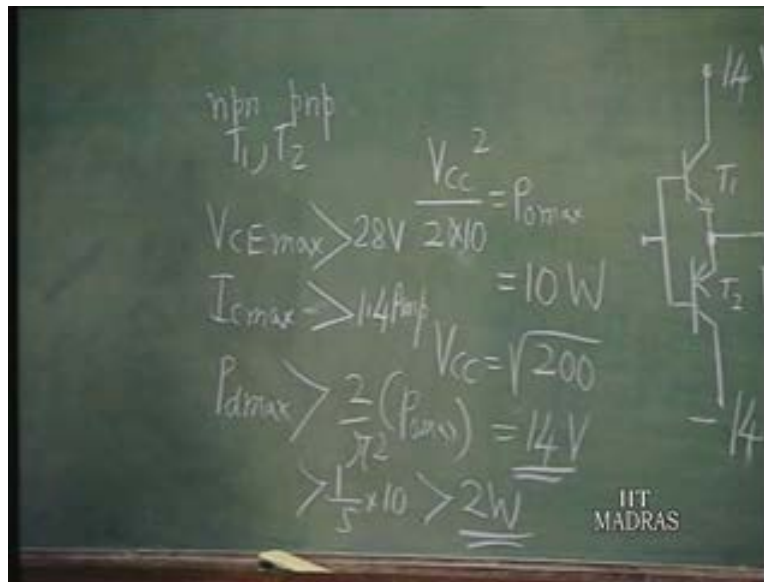 npn pnp
T1, T2
VCEmax > 28V
Icmax > 1.4 Amp
Pdmax > 2/π² (Pomax)
> 1/5 × 10 > 2W
VCC²/2×10 = Pomax
= 10 W
VCC = √200
= 14 V
14 V
T1
T2
- 14
IIT
MADRAS